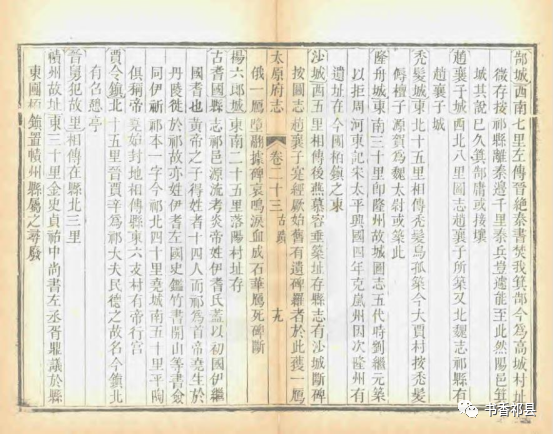 郜城西南七里左傳晉絶秦書焚我箕郜今為高城村址
微存按祁縣離秦邊千里秦兵豈遽能至此然陽邑箕
城其說已久箕郜庸或接壤
趙襄子城西北八里圖志趙襄子所築又北魏志祁縣有
趙襄子城
禿髮城東北十五里相傳禿髮烏孤築今大賈村按禿髮
傉檀子源賀為魏太尉或築此
隆州城東南三十里即隆州故城圖志五代時劉繼元築
以拒周河東記宋太平興國四年克嵐州因次隆州有
遺址在今團柏鎮之東
沙城西五里相傳後燕慕容垂築址存縣志有沙城斷碑
按圖志趙襄子寔經厥始舊有遺碑羅者於此獲一鴈
太原府志
卷二十三
古蹟
十九
俄一鴈墮翮掠碑哀鳴淚血成石華鴈死碑斷
揚六郎城東南二十五里落陽村址存
古耆國縣志祁邑源流考炎帝姓伊耆氏蓋以初國伊繼
國耆也黃帝之子得姓者十四人而祁為首帝堯生於
丹陵徙於祁故亦姓伊耆左國史鑑竹書開山等書僉
同伊祈祁本一字今祁北四十里堯城南五十里平陶
俱稱帝堯始封地相傳縣東六支村有帝行宮
賈令鎮北十五里晉賈辛為祁大夫民德之故名今鎮北
有名憩亭
晉舅犯故里相傳在縣北三里
幘州故址東三十里金史貞祐中尚書左丞胥鼎議於縣
東團柏鎮置幘州縣屬之尋廢
书香祁县